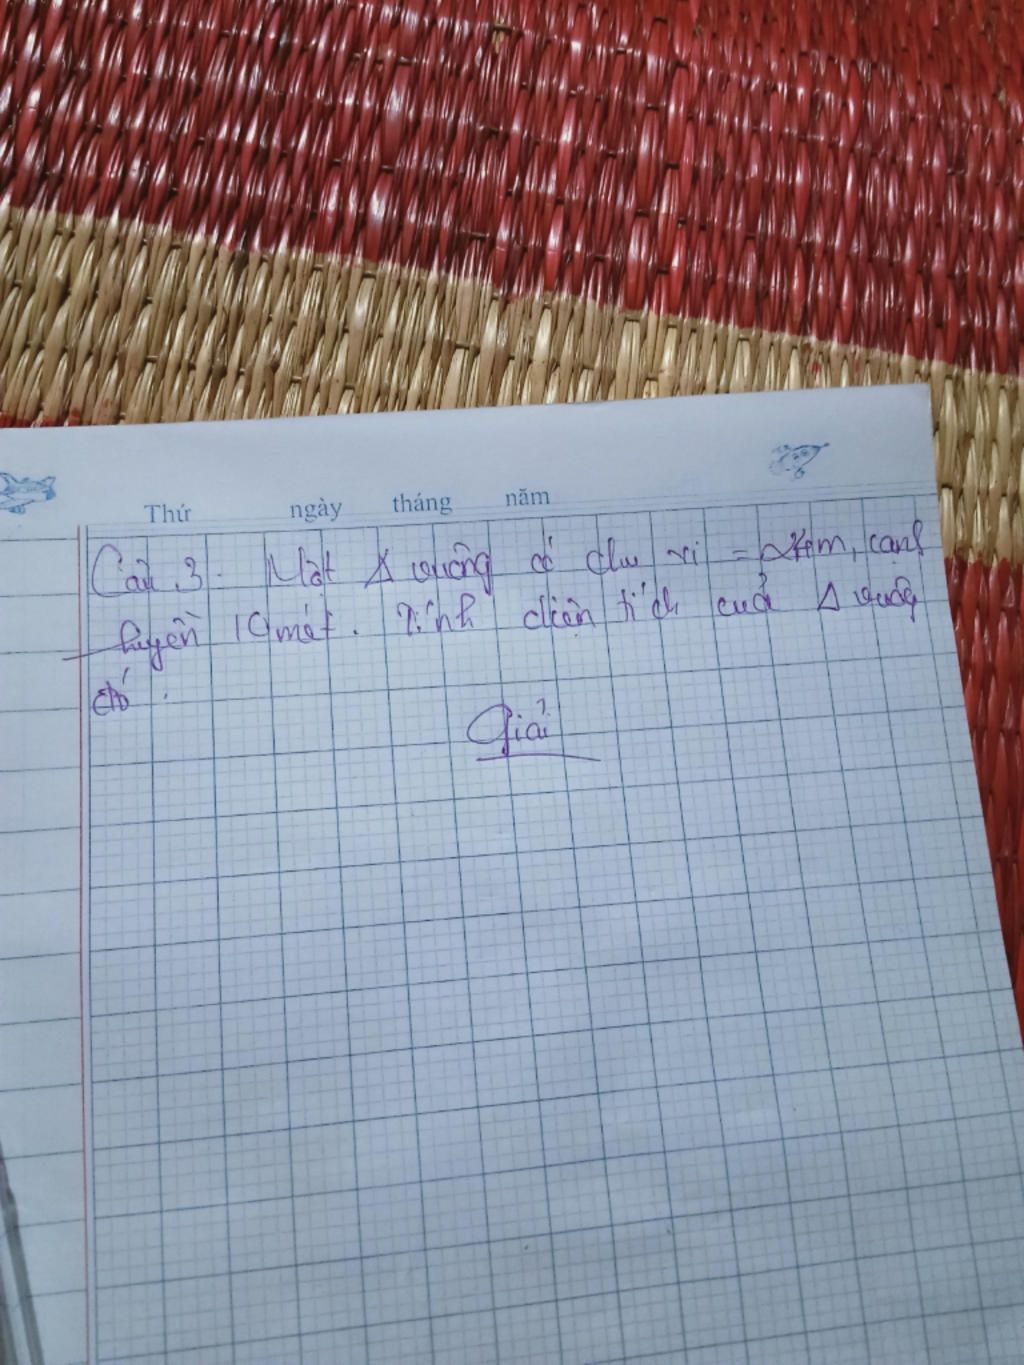 Thứ ngày tháng năm
Câu 3. Một Δ vuông có chu vi = 24m, cạnh
huyền 10 mét. Tính diện tích cuả Δ vuông
đó.
Giải